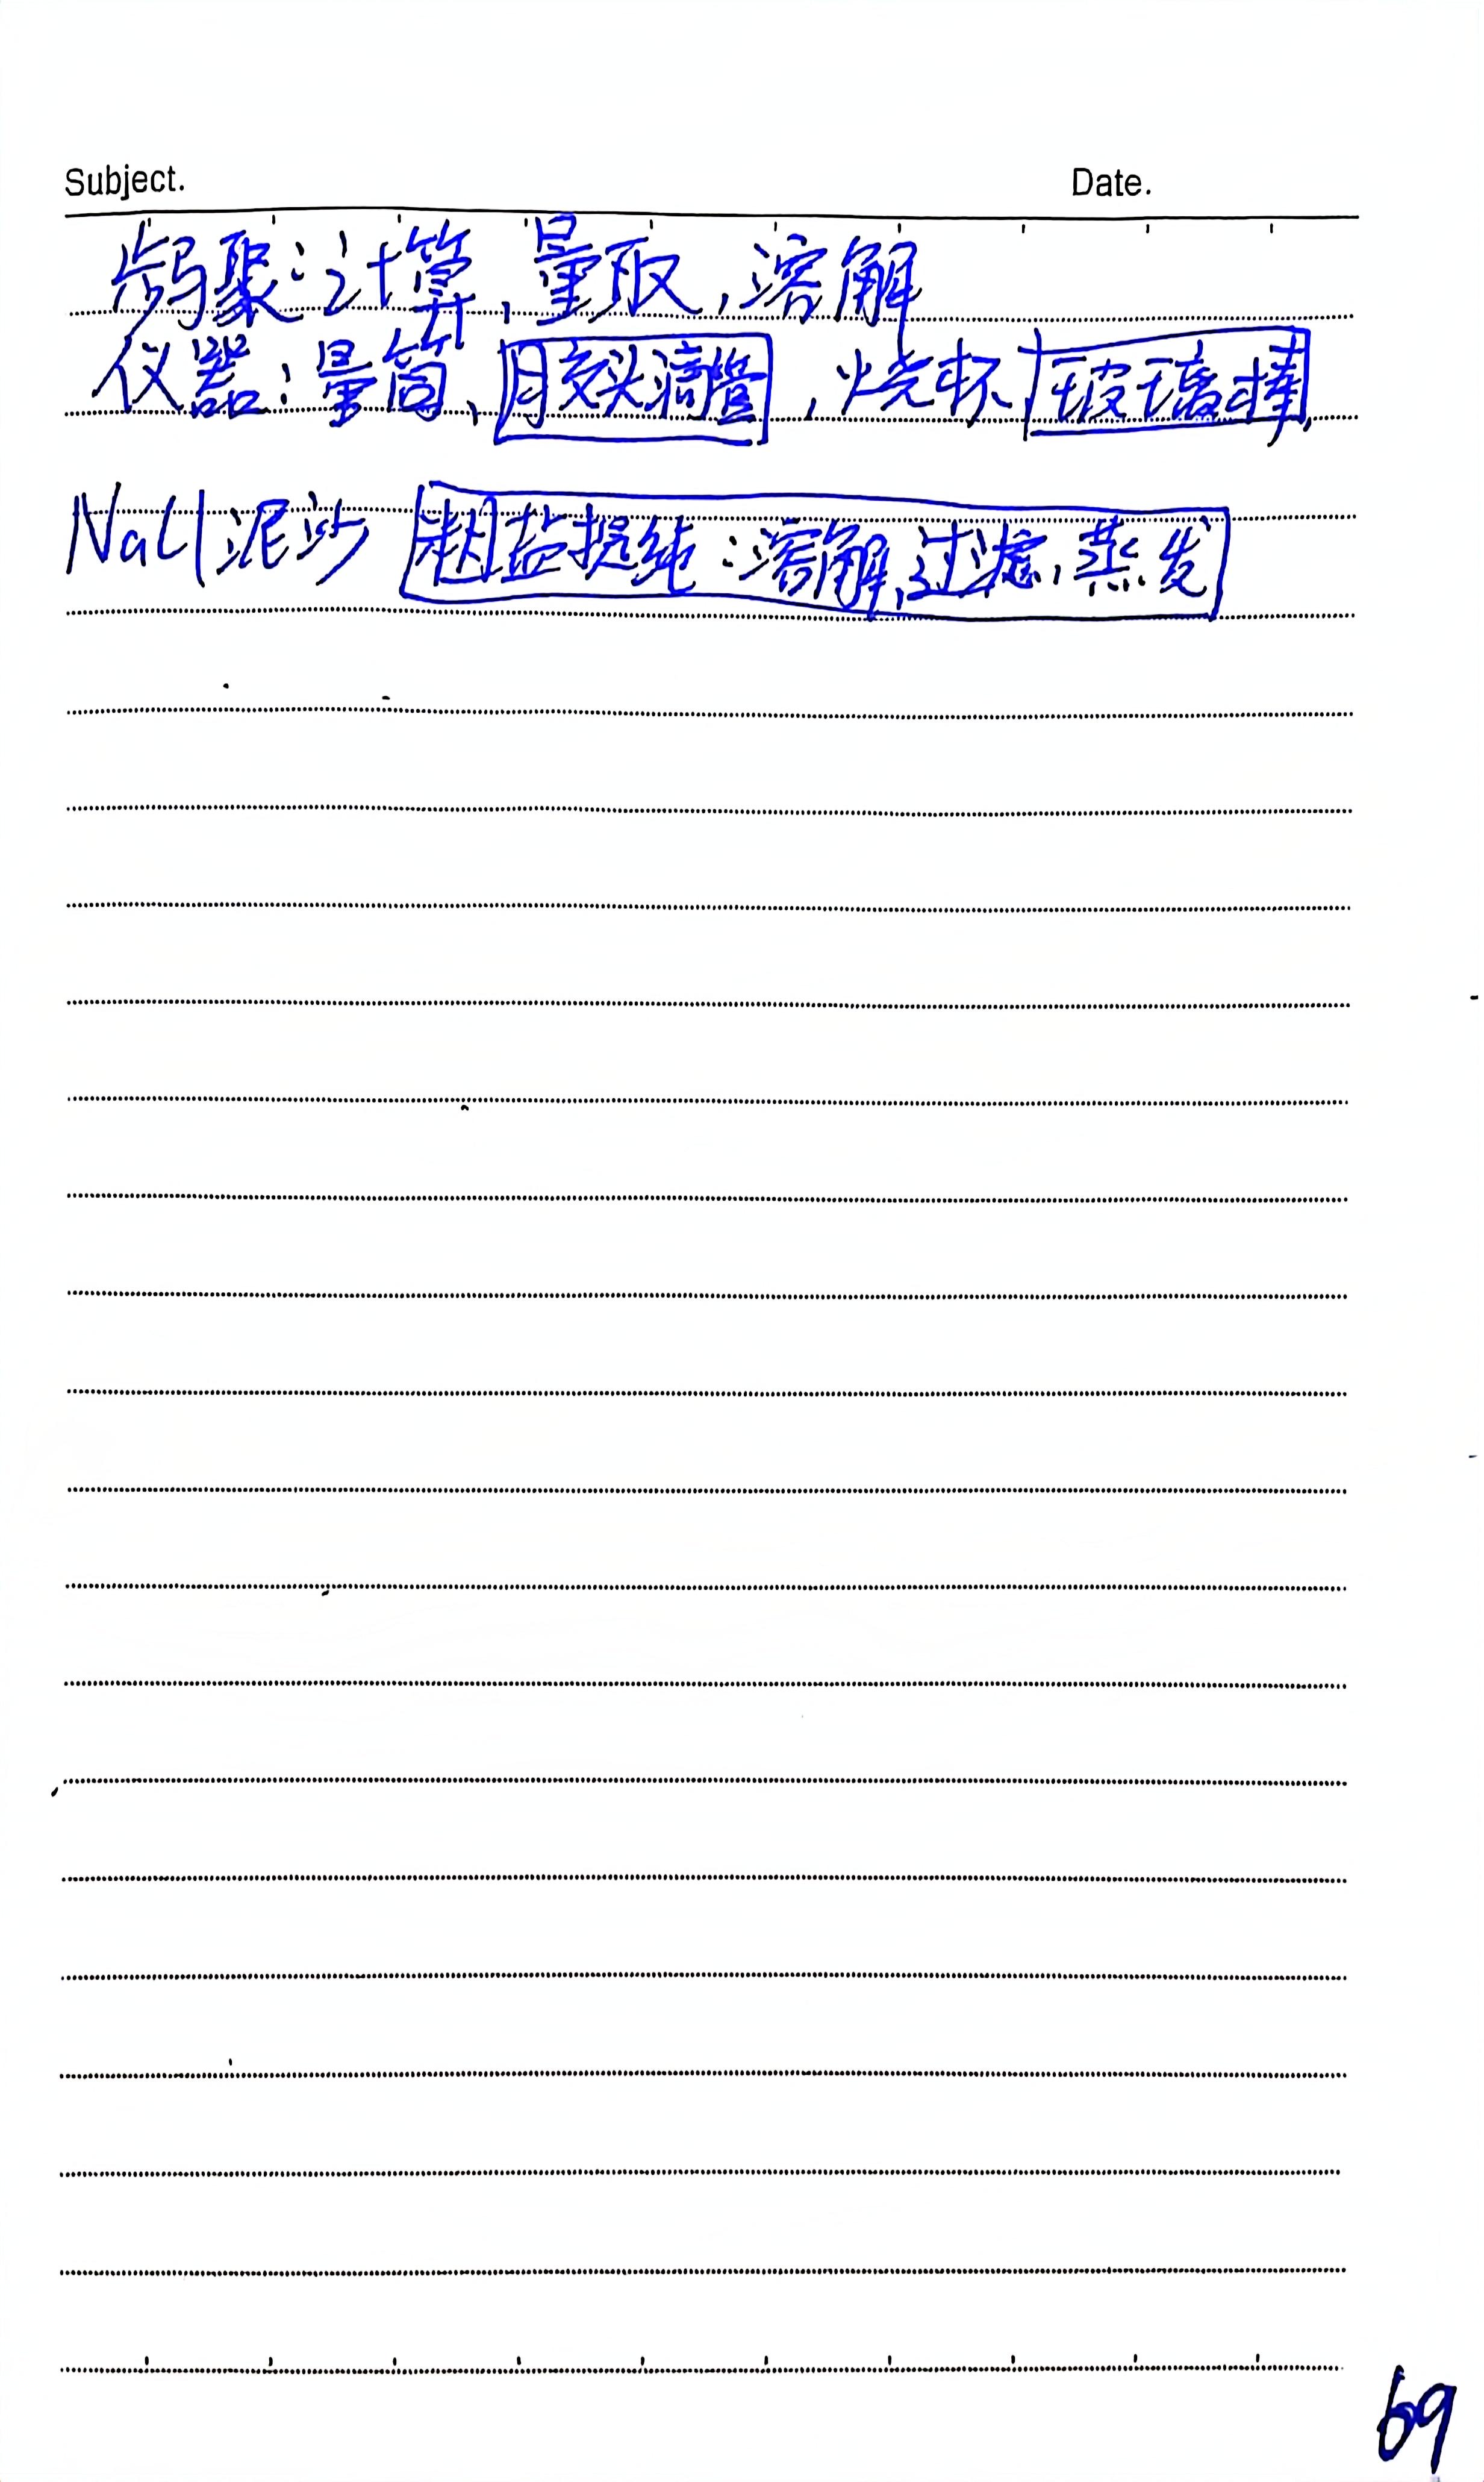 Subject. Date.
步骤:计算,量取,溶解
仪器:量筒、胶头滴管,烧杯,玻璃棒,
NaCl 泥沙 粗盐提纯:溶解,过滤,蒸发
69